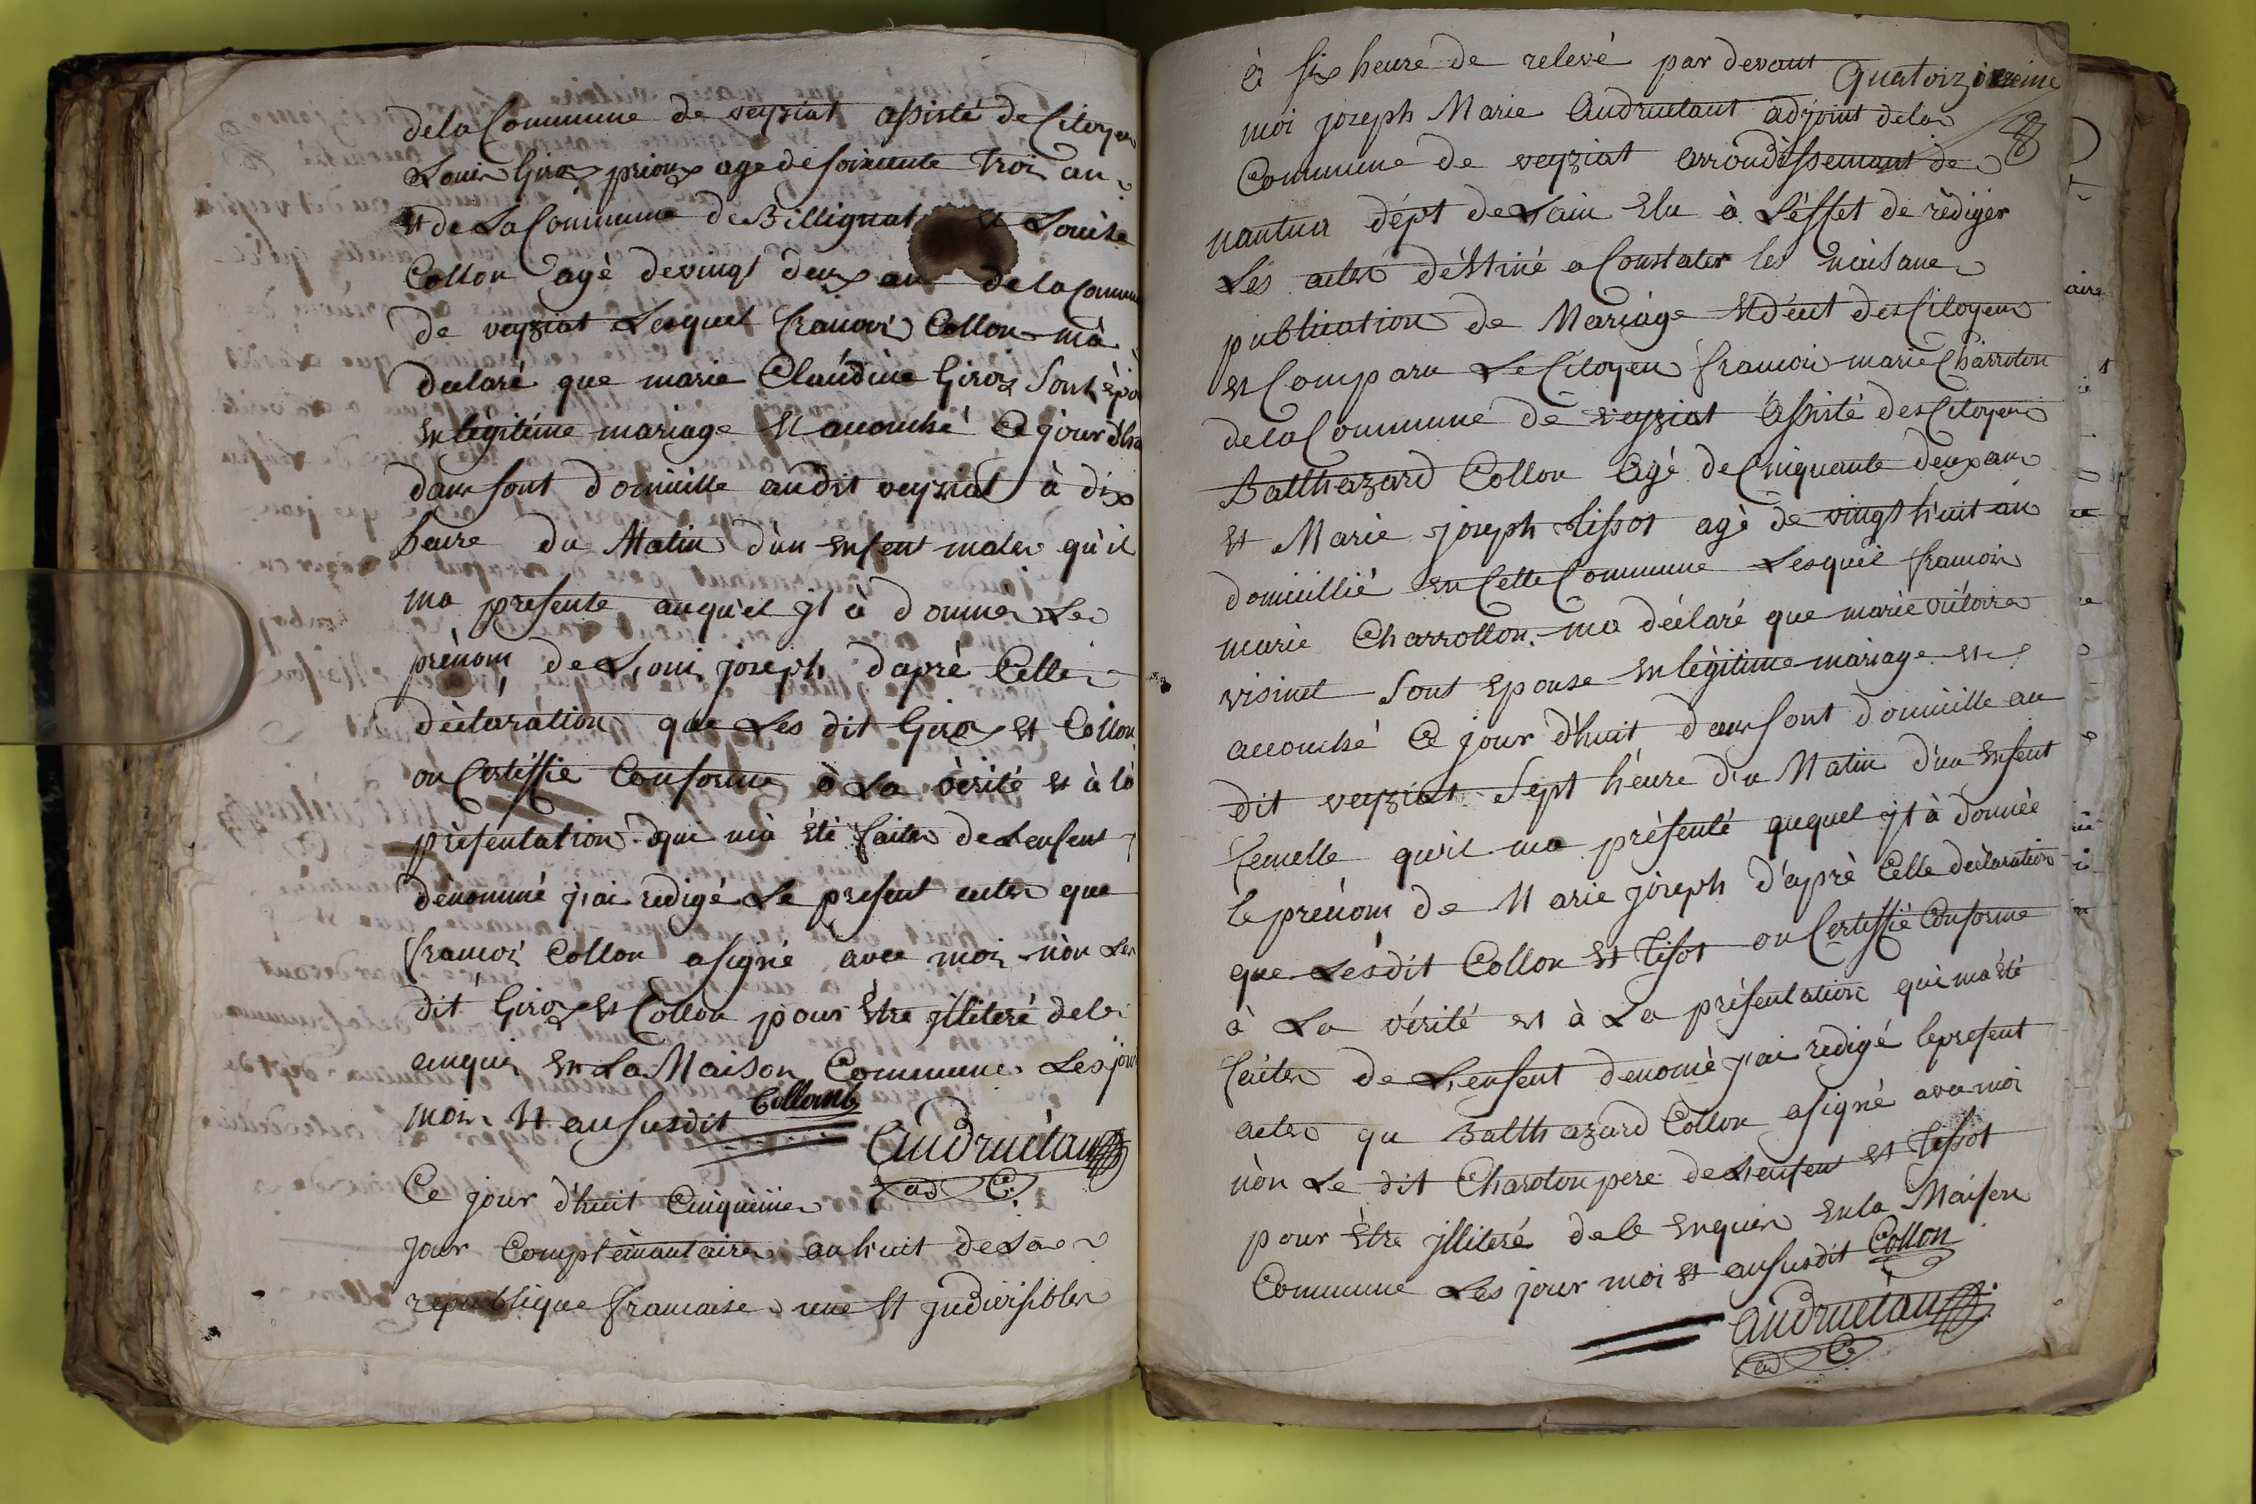 de la Commune de veyziat assisté de Citoyen
Louis Girox prioux agé de soixente trois an
et de La Commune de Billignat et Louise
Collon agé de vingt deux an de la Commu
de veyziat Lesquel francois Collon ma
declaré que marie Claúdine Girox sont épo
en légitime mariage et acouché Ce jour d'hu
dans sont domicille audit veyziat à dix
heure du Matin d'un enfent males qu'il
ma presente auquel jl à donnér Le
prénom de Loui joseph d'apré Celle
dèclaration que Les dit Girox et Collon
on Certiffie Conforme à La vèrité et à la
présentation qui mà été faites de Lenfent
dènommé j'ai redigé Le present actes que
francoi Collon a signé avec moi nòn Les
dit Girox et Collon pour être jlliteré de le
enquir en La Maison Commune Les jour
moir et an susdit Collomb
Audruetan
ad C.
Ce jour d'huit Cinquième
Jour Complémantaire an huit de La
république francaise une et jndivisibles
Quatorzi
à six heure de relevé par devant
moi joseph Marie Audruetant adjoint de la
Commune de veyziat arrondissement de
nantua dépt de Lain elu à L'éffet de rèdiger
Les actes déstiné a Constater les naisane
publication de Mariàge et décet des Citoyens
et Comparu Le Citoyen francoi marie Charroton
de la Commune de veyziat assisté des Citoyens
Balthazard Collon agé de Cinquante deux an
et Marie joseph tissot agè de vingt h'uit an
domicillié en Celle Commune Lesquel francoi
marie Charrollon ma déclaré que marie victoire
visinet sont epouse en lègitime mariage et
acouché Ce jour d'huit dans sont domicille au
dit veyziat Sept hèure du Matin d'un enfent
femelle qu'il ma présenté auquel jl à donnée
le prénom de Marie joseph d'aprè Celle declaration
que Lesdit Collon et tisot on Certiffié Conforme
à La vérité et à La présentation qui ma été
faites de L'enfent denomè j'ai redigé le present
actes qu Balthazard Collon a signé avec moi
nòn Le dit Charoton pere de Lenfent et tissot
pour être jlliteré de le enquir en la Maison
Commune Les jour moi et an susdit Collon
Audruetan
ad C.